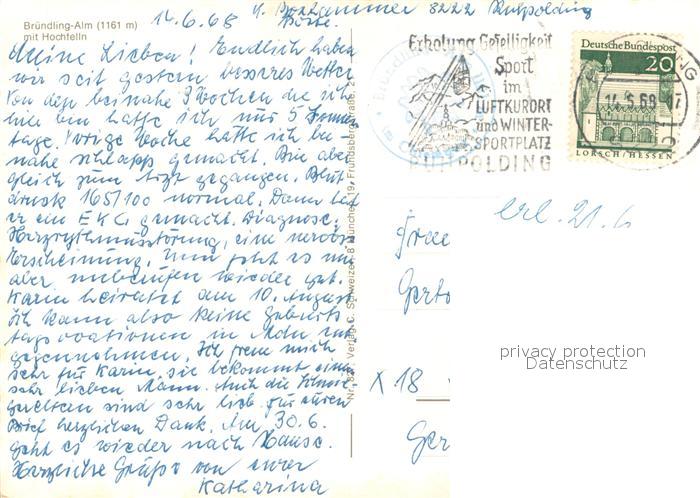 Bründling-Alm (1161 m)
mit Hochfelln
14.6.68
8222 Ruhpolding
Meine Lieben! Endlich haben
wir seit gestern besseres Wetter
Von den beinahe 3 Wochen die ich
hier bin hatte ich nur 5 Sonnen
tage. Vorige Woche hatte ich bei
nahe schlapp gemacht. Bin aber
gleich zum Arzt gegangen. Blut
druck 165/100 normal. Dann hat
er ein EKG gemacht. Diagnose:
Herzrythmusstörung, eine nervöse
Erscheinung. Nun geht es mir
aber unberufen wieder gut.
Karin heiratet am 10. August
Ich kann also keine Geburts
tagsovationen in entgegennehmen. Ich freue mich
sehr für Karin, sie bekommt einen
sehr lieben Mann. Auch die Schwie-
gereltern sind sehr lieb. Für Euren
Brief herzlichen Dank. Am 30.6.
geht es wieder nach Hause.
Herzliche Grüße von Eurer
Katharina
Verlag C. Schweizer, 8 München 19, Frundsbergstraße
Erholung Geselligkeit
Sport
im
LUFTKURORT
und WINTER-
SPORTPLATZ
RUHPOLDING
Deutsche Bundespost
20
LORSCH/HESSEN
erl. 21.6
X 18
privacy protection
Datenschutz